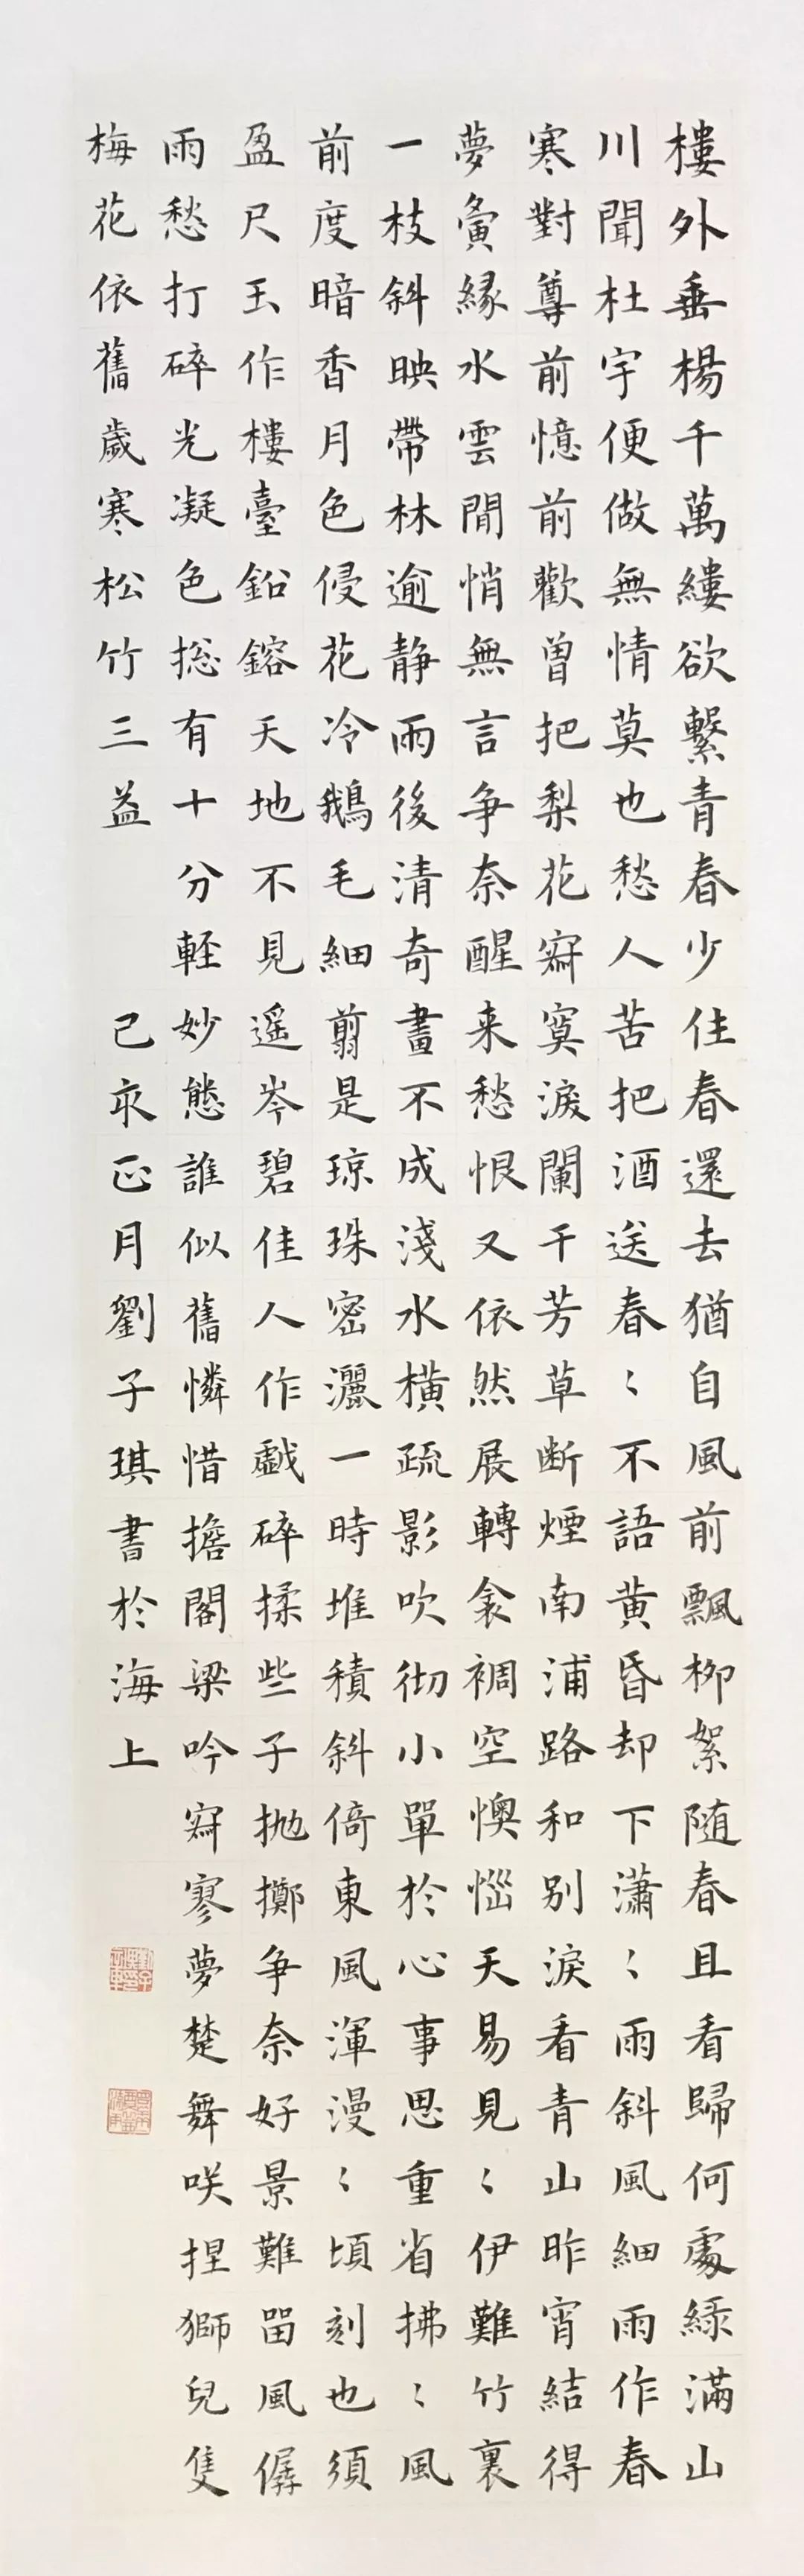 樓外垂楊千萬縷欲繫青春少住春還去猶自風前飄柳絮随春且看歸何處緑滿山
川聞杜宇便做無情莫也愁人苦把酒送春〻不語黄昏却下瀟〻雨斜風細雨作春
寒對尊前憶前歡曾把梨花寂寞淚闌干芳草断煙南浦路和别淚看青山昨宵結得
夢夤緣水雲間悄無言争奈醒来愁恨又依然展轉衾裯空懊惱天易見〻伊難竹裏
一枝斜映帶林逾静雨後清奇畫不成淺水横疏影吹彻小單於心事思重省拂〻風
前度暗香月色侵花冷鵝毛細翦是琼珠密灑一時堆積斜倚東風渾漫〻頃刻也須
盈尺玉作樓臺鉛鎔天地不見遥岑碧佳人作戯碎揉些子抛擲争奈好景難留風僝
雨愁打碎光凝色捴有十分軽妙態誰似舊憐惜擔閣梁吟寂寥夢楚舞咲捏獅兒隻
梅花依舊歲寒松竹三益 己亥正月劉子琪書於海上